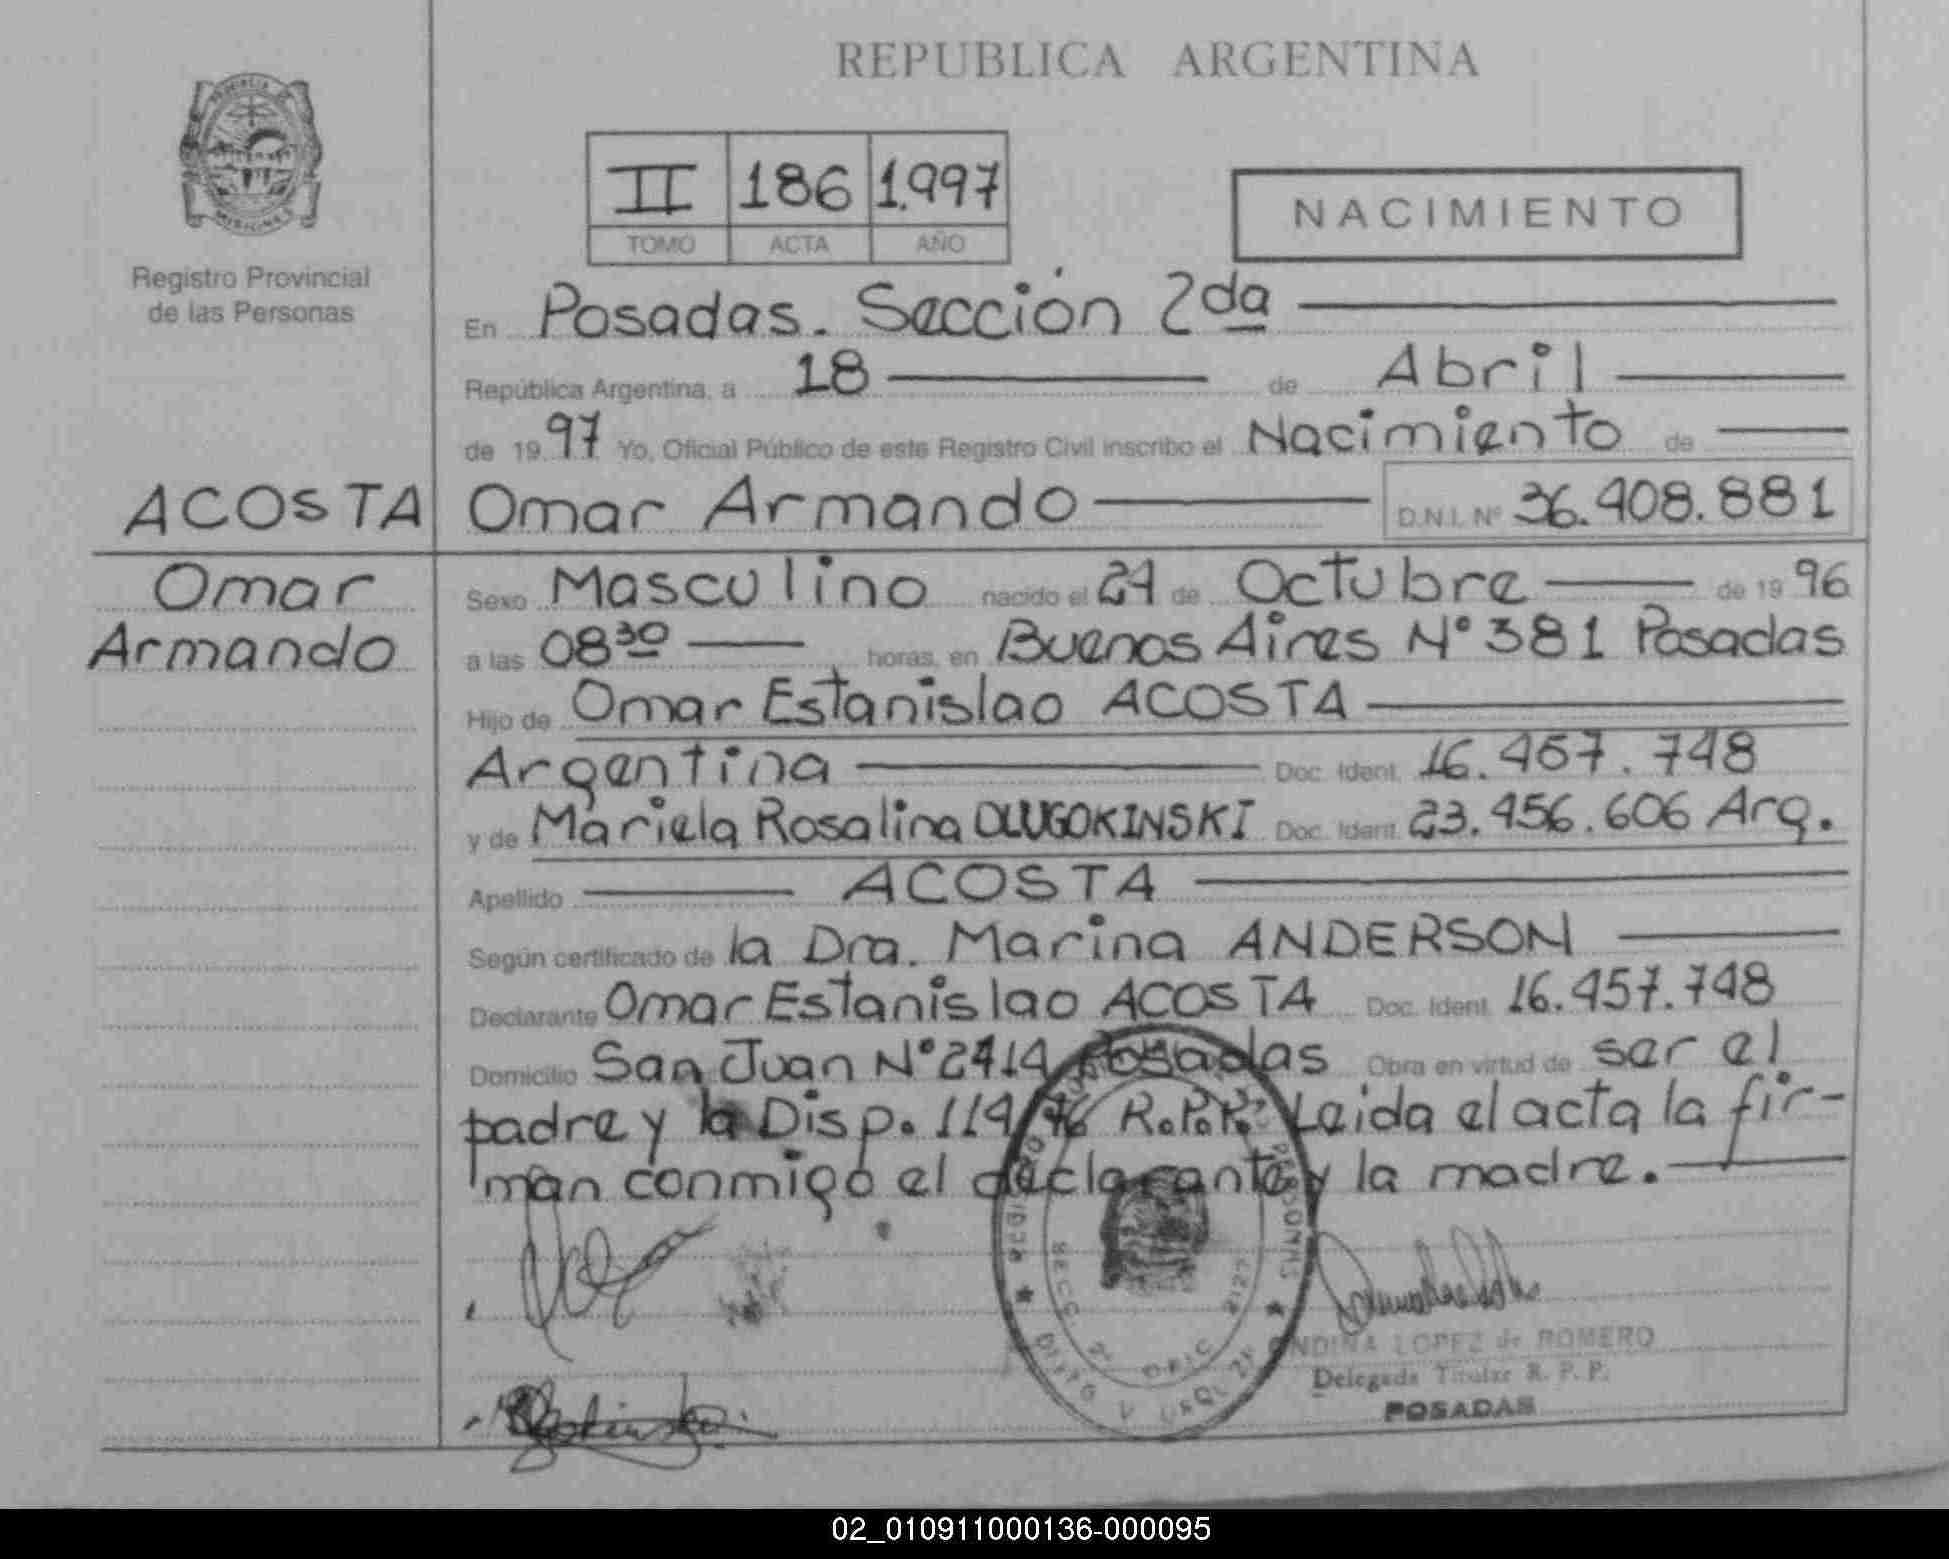 REPUBLICA ARGENTINA
II 186 1.997
TOMO ACTA AÑO
NACIMIENTO
Registro Provincial
de las Personas
En Posadas. Sección 2da
República Argentina, a 18 de Abril
de 1997 Yo, Oficial Público de este Registro Civil inscribo el Nacimiento de
ACOSTA Omar Armando D.N.I. Nº 36.408.881
Omar
Armando
Sexo Masculino nacido el 24 de Octubre de 1996
a las 08 30 horas, en Buenos Aires Nº 381 Posadas
Hijo de Omar Estanislao ACOSTA
Argentina Doc. Ident. 16.457.748
y de Mariela Rosalina DLUGOKINSKI Doc. Ident. 23.456.606 Arg.
Apellido ACOSTA
Según certificado de la Dra. Marina ANDERSON
Declarante Omar Estanislao ACOSTA Doc. Ident. 16.457.748
Domicilio San Juan Nº 2414 Posadas Obra en virtud de ser el
padre y la Disp. 114/76 R.P.P. Leida el acta la fir-
man conmigo el declarante y la madre.
LOPEZ de ROMERO
Delegada Titular R. P. P.
POSADAS
02_010911000136-000095